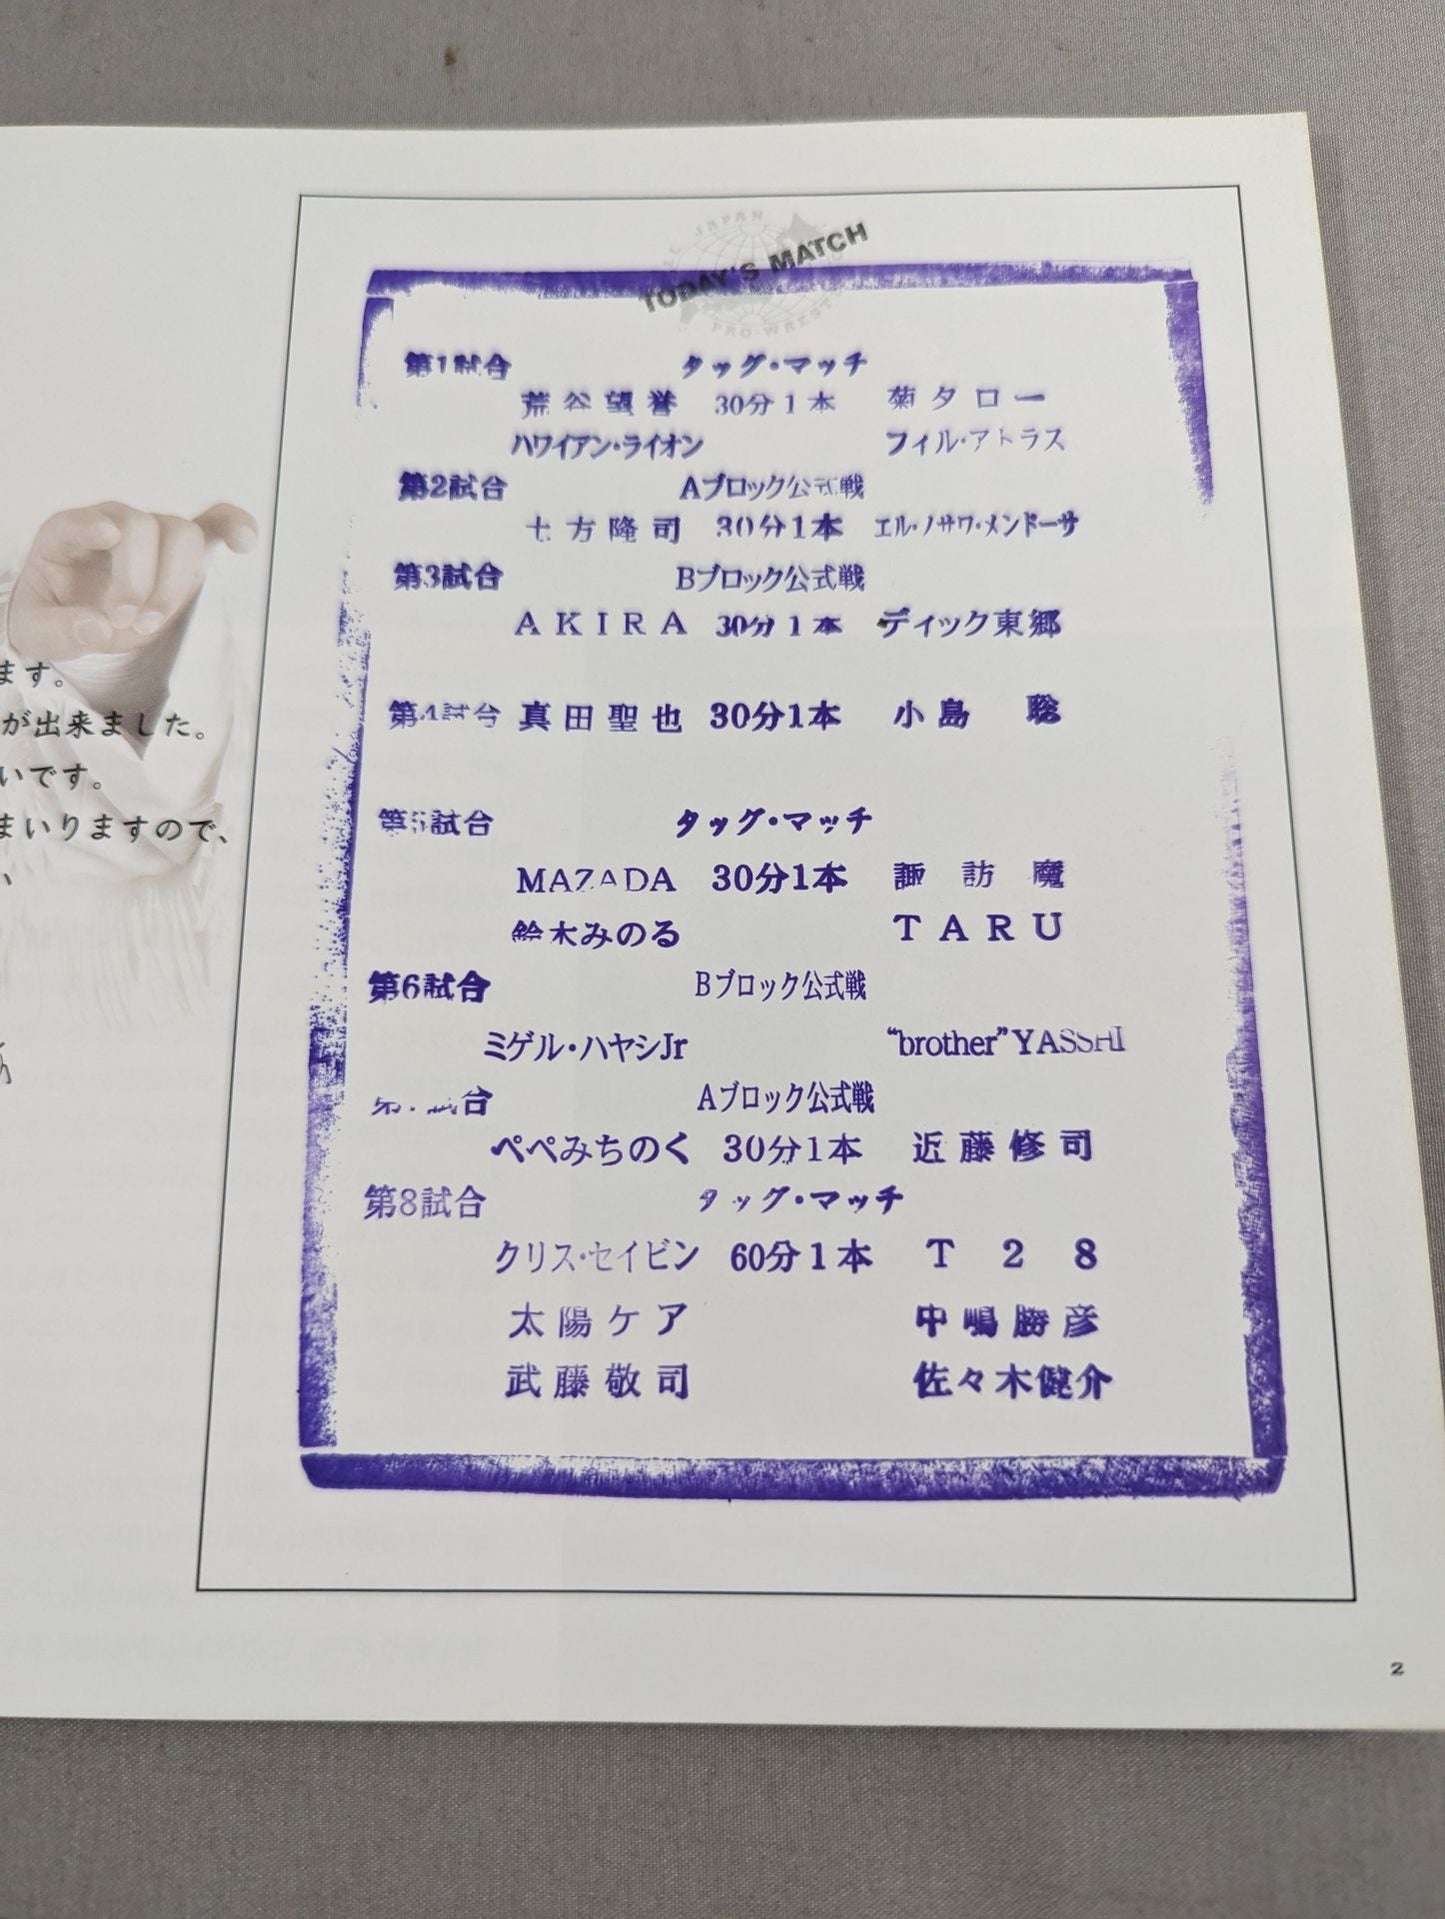 ます。
が出来ました。
いです。
まいりますので、
ALL JAPAN
PRO-WREST
TODAY'S MATCH
第1試合 タッグ・マッチ
荒谷望誉 30分1本 菊タロー
ハワイアン・ライオン フィル・アトラス
第2試合 Aブロック公式戦
土方隆司 30分1本 エル・ノサワ・メンドーサ
第3試合 Bブロック公式戦
AKIRA 30分1本 ディック東郷
第4試合 真田聖也 30分1本 小島 聡
第5試合 タッグ・マッチ
MAZADA 30分1本 諏訪魔
鈴木みのる TARU
第6試合 Bブロック公式戦
ミゲル・ハヤシJr “brother”YASSHI
第7試合 Aブロック公式戦
ペペみちのく 30分1本 近藤修司
第8試合 タッグ・マッチ
クリス・セイビン 60分1本 T28
太陽ケア 中嶋勝彦
武藤敬司 佐々木健介
2